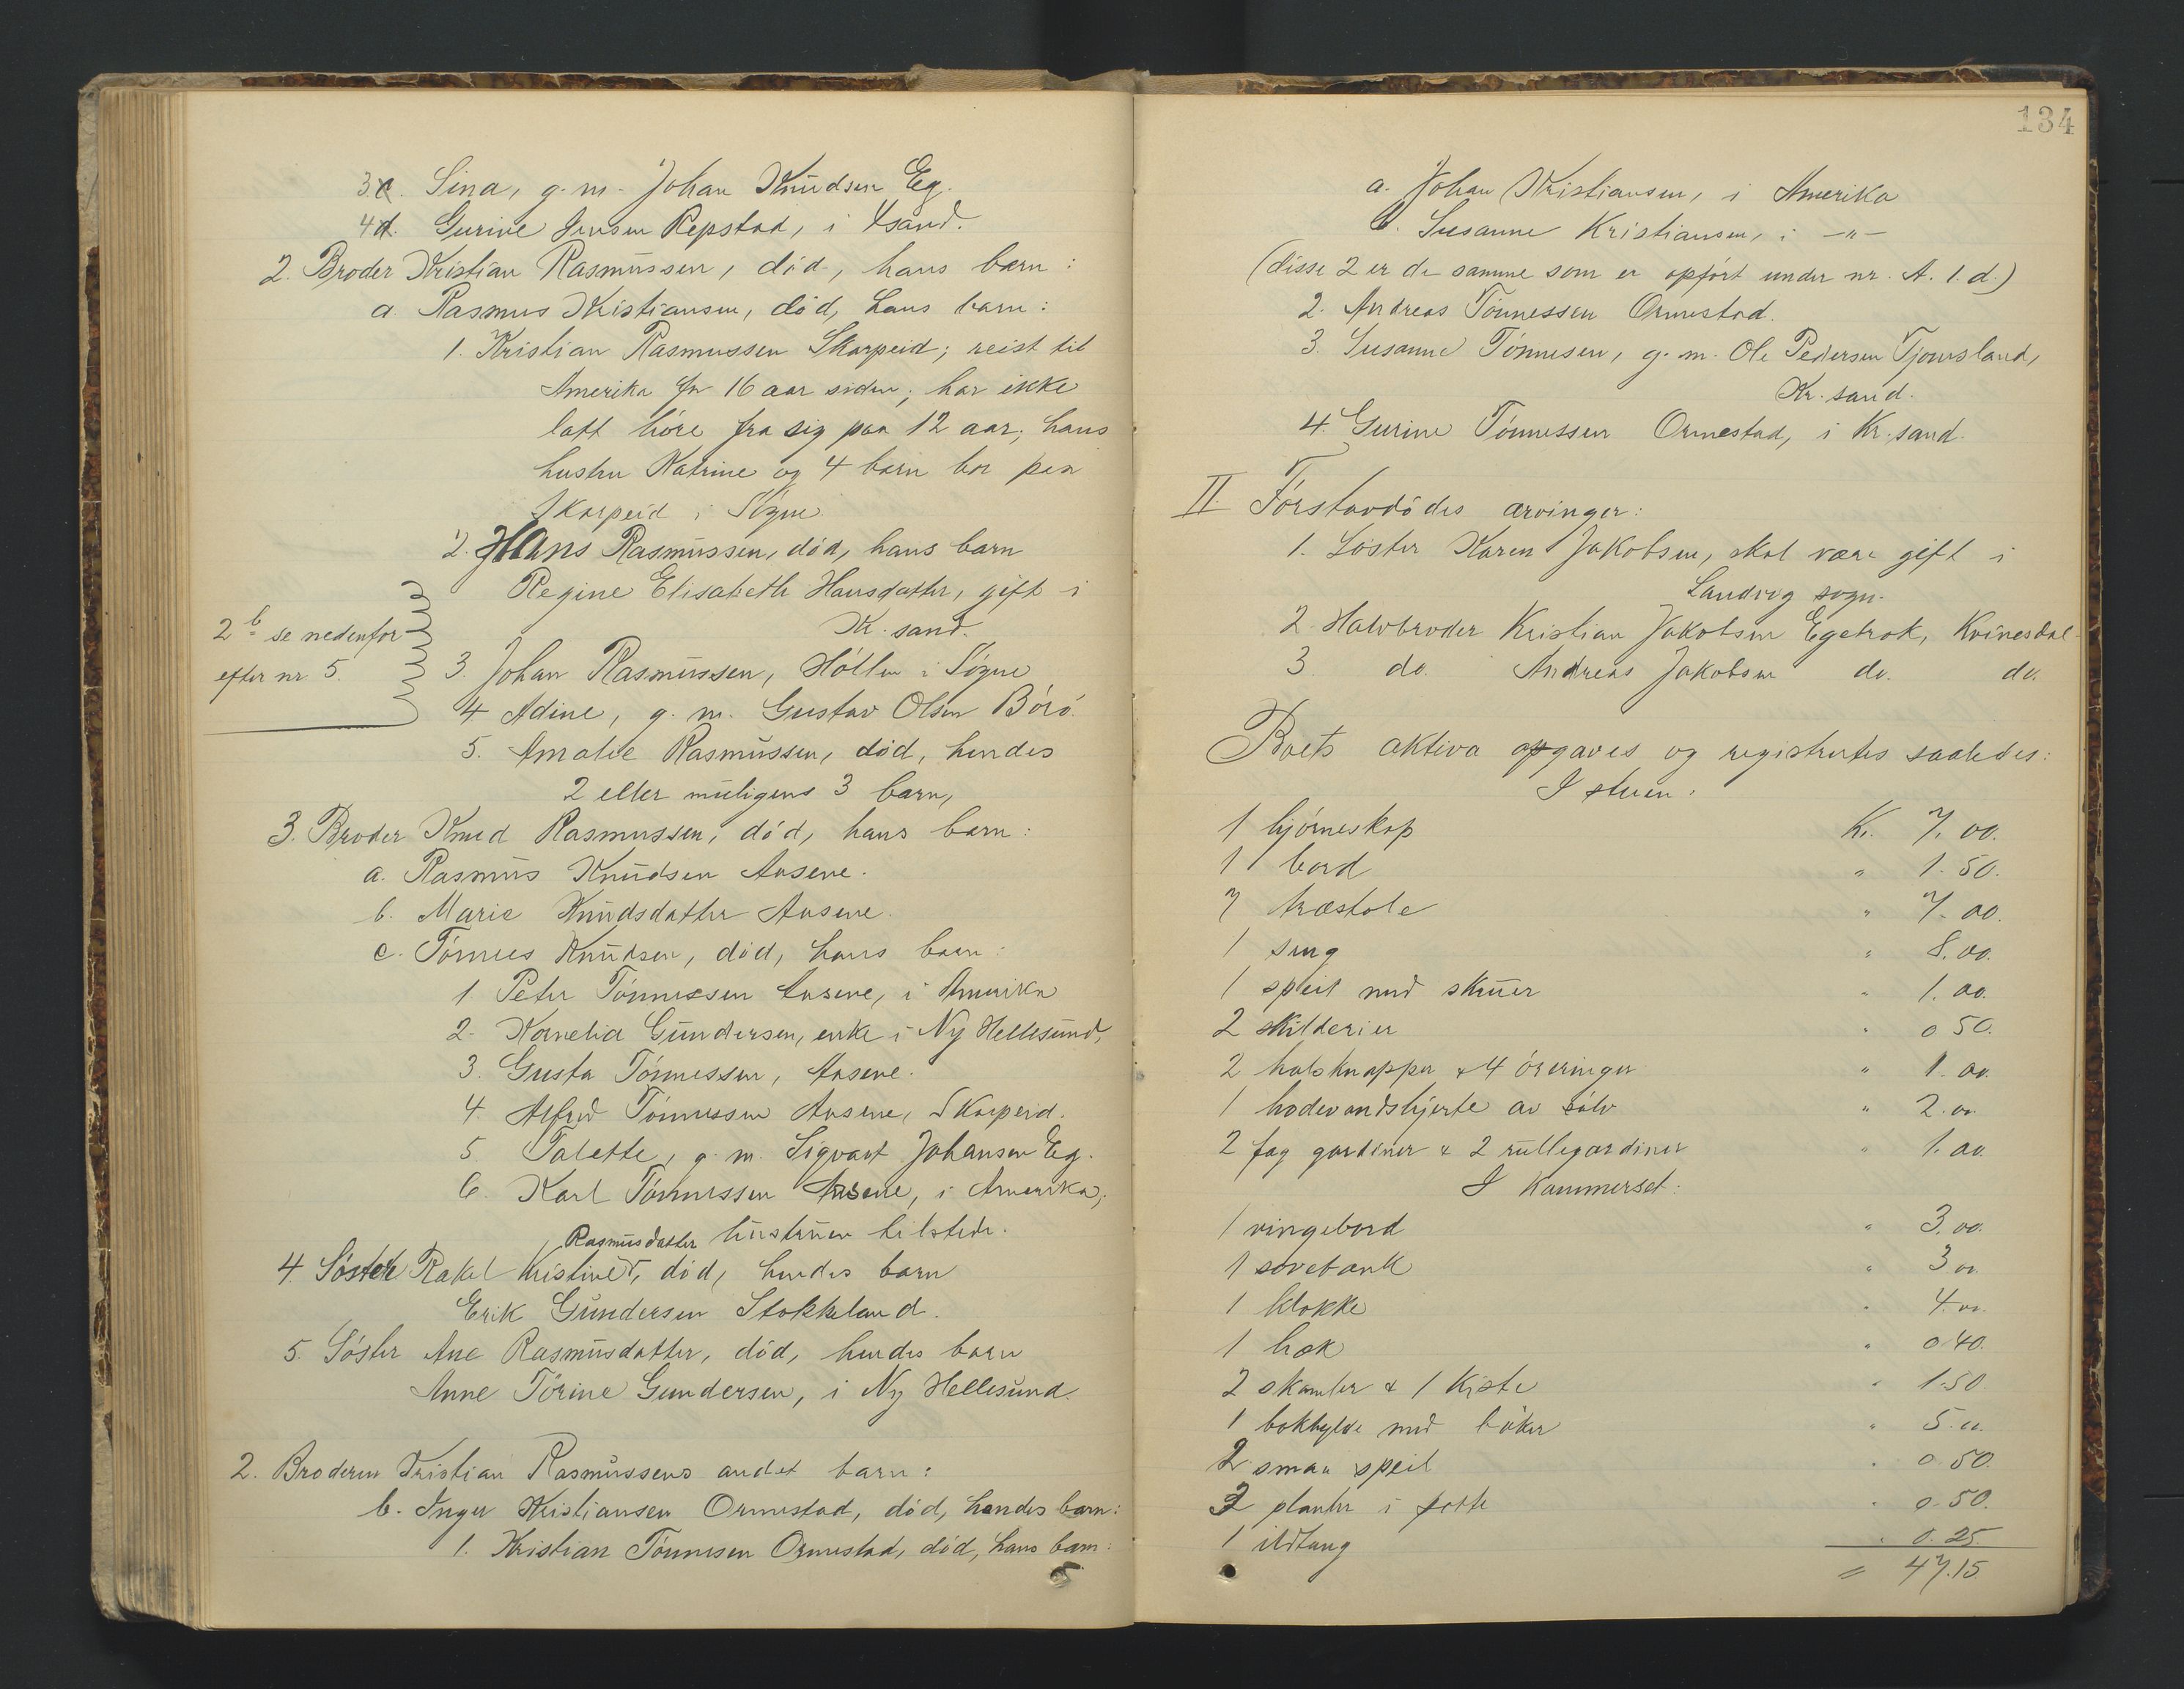 3. Sina, g. m. Johan Knudsen Eg.
4. Gurine Jensen Repstad, i Xsand.
2. Broder Kristian Rasmussen, död, hans barn:
a. Rasmus Kristiansen, död, hans barn:
1. Kristian Rasmussen Skarpeid; reist til
Amerika for 16 aar siden; har ikke
latt höre fra sig paa 12 aar; hans
hustru Katrine og 4 barn bor paa
Skarpeid i Sögne.
2. Hans Rasmussen, död, hans barn
Regine Elisabeth Hansdatter, gift i
Kr.sand.
2 b se nedenfor
efter nr 5.
3. Johan Rasmussen, Höllen i Sögne
4 Adine, g. m. Gustav Olsen Börö.
5. Amalie Rasmussen, död, hendes
2 eller muligens 3 barn,
3. Broder Knud Rasmussen, död, hans barn:
a. Rasmus Knudsen Aasene.
b. Marie Knudsdatter Aasene.
c. Tönnes Knudsen, död, hans barn:
1 Peter Tönnessen Aasene, i Amerika
2. Kornelia Gundersen, enke i Ny Hellesund,
3. Gusta Tönnessen, Aasene.
4. Alfred Tönnessen Aasene, Skarpeid.
5. Talette, g. m. Sigvart Johansen Eg.
6. Karl Tönnessen Aasene, i Amerika;
hustruen tilstede.
4. Söster Rakel Kristine Rasmusdatter, död, hendes barn
Erik Gundersen Stokkeland.
5. Söster Ane Rasmusdatter, död, hendes barn
Anne Törine Gundersen, i Ny Hellesund.
2. Broderen Kristian Rasmussens andet barn:
b. Inger Kristiansen Ormestad, död, hendes barn:
1. Kristian Tönnesen Ormestad, död, hans barn:
134
a. Johan Kristiansen, i Amerika
b. Susanne Kristiansen, i -"-
(disse 2 er de samme som er opfört under nr. A. 1. d.)
2. Andreas Tönnessen Ormestad.
3. Susanne Tönnesen, g. m. Ole Pedersen Tjomsland,
Kr.sand.
4. Gurine Tönnessen Ormestad, i Kr.sand.
II. Förstavdödes arvinger:
1. Söster Karen Jakobsen, skal være gift i
Landvig sogn.
2. Halvbroder Kristian Jakobsen Egebrok, Kvinesdal
3. do. Andreas Jakobsen do. do.
Boets aktiva opgaves og registrertes saaledes:
I stuen:
1 hjörneskap Kr. 7.00.
1 bord " 1.50.
7 træstole " 7.00.
1 seng " 8.00.
1 speil med skuer " 1.00.
2 skilderier " 0 50.
2 halsknapper & 4 öreringer " 1.00.
1 hodevandshjerte av sölv " 2.00.
2 fag gardiner & 2 rullegardiner " 1.00.
I Kammerset:
1 vingebord " 3.00.
1 sovebank " 3.00.
1 klokke " 4.00.
1 hak " 0 40.
2 skamler & 1 kiste " 1.50.
1 bokhylde med böker " 5.00.
2 smaa speil " 0.50.
3 planter i potte " 0.50.
1 ildtang " 0.25.
= 47.15.